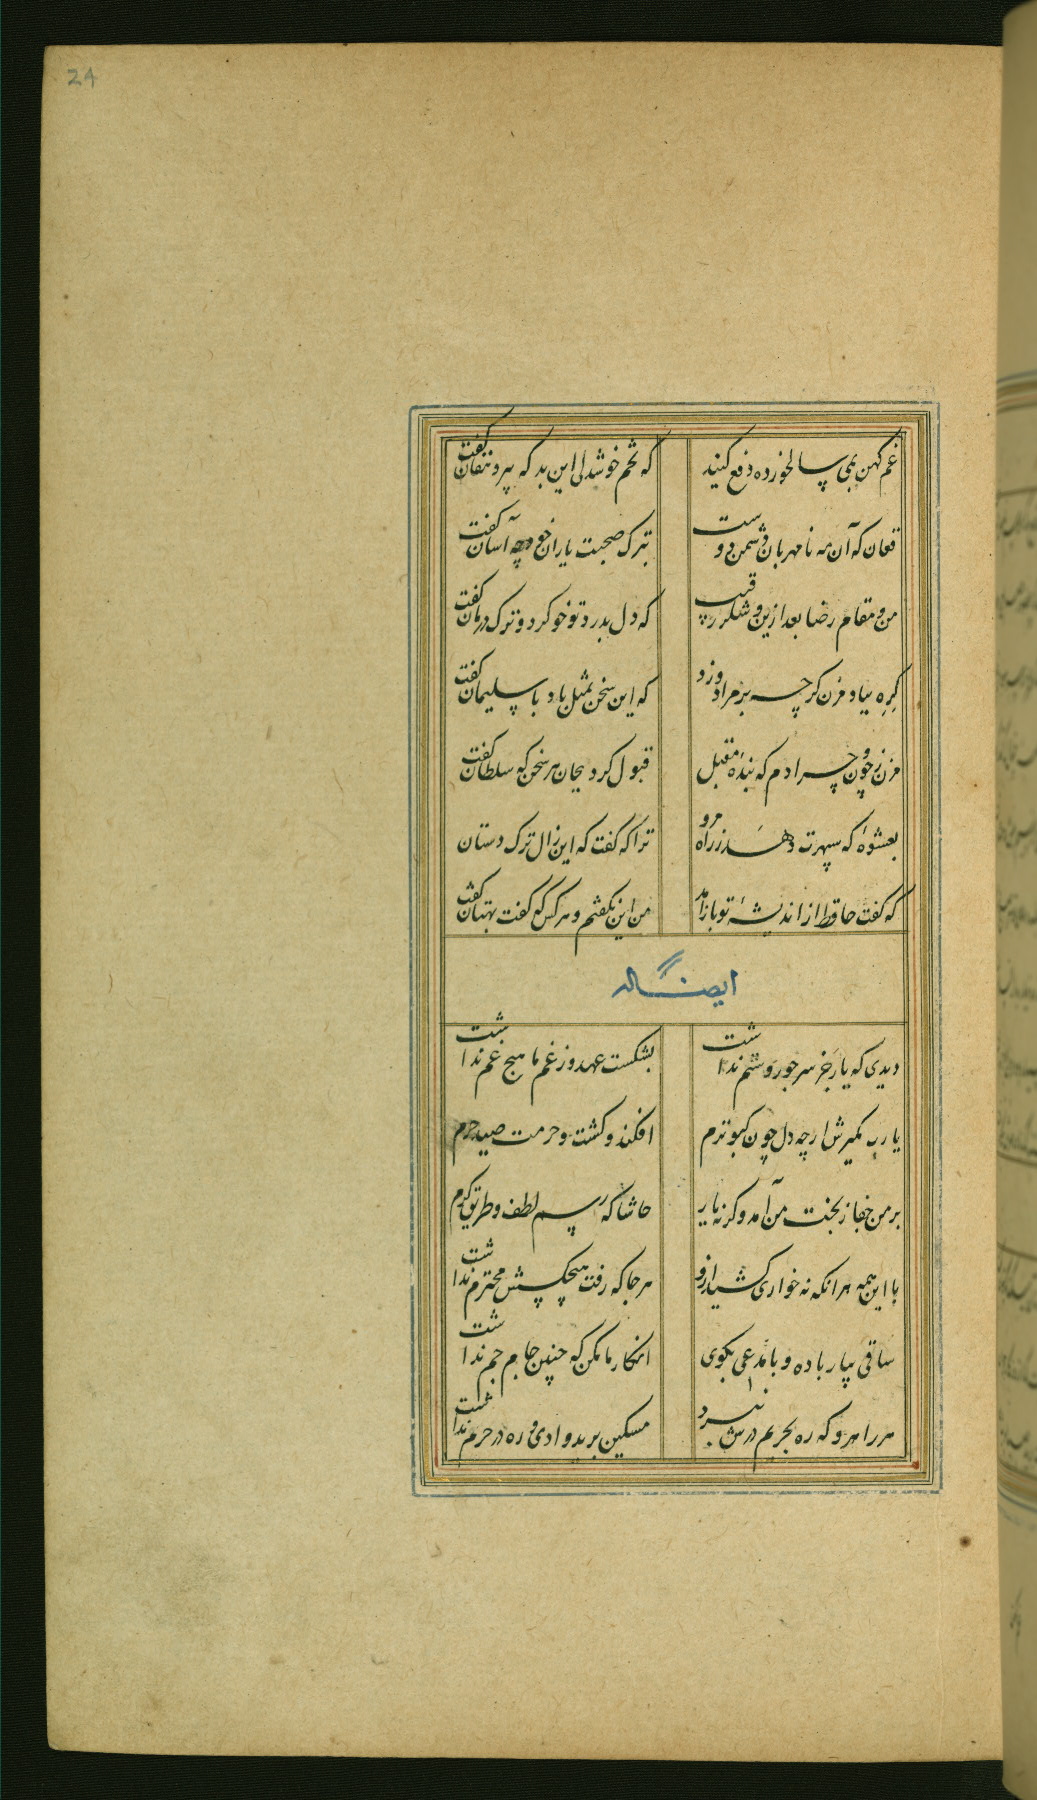 24
غم کهن بمی سالخورده دفع کنید
که تخم خوشدلی این بد که پیر دهقان گفت
فغان که آن مه نامهربان دشمن دوست
بترک صحبت یاران خود چه آسان گفت
من و مقام رضا بعد ازین و شکر رقیب
که دل بدرد تو خو کرد و ترک درمان گفت
گره بباد مزن گرچه بر مراد وزد
که این سخن بمثل باد با سلیمان گفت
مزن ز چون و چرا دم که بندهٔ مقبل
قبول کرد بجان هر سخن که سلطان گفت
بعشوهٔ که سپهرت دهد ز راه مرو
ترا که گفت که این زال ترک دستان
که گفت حافظ از اندیشهٔ تو باز آمد
من این نگفتم و هر کس که گفت بهتان گفت
ایضا له
دیدی که یار جز سر جور و ستم نداشت
بشکست عهد وز غم ما هیچ غم نداشت
یا رب مگیرش ار چه دل چون کبوترم
افکند و کشت و حرمت صید حرم
بر من جفا ز بخت من آمد وگرنه یار
حاشا که رسم لطف و طریق کرم
با این همه هرانکه نه خواری کشید ازو
هر جا که رفت هیچکسش محترم نداشت
ساقی بیار باده و با مدعی بگوی
انکار ما مکن که چنین جام جم نداشت
هر راهرو که ره بحریم درش نبرد
مسکین برید وادی و ره در حرم نداشت